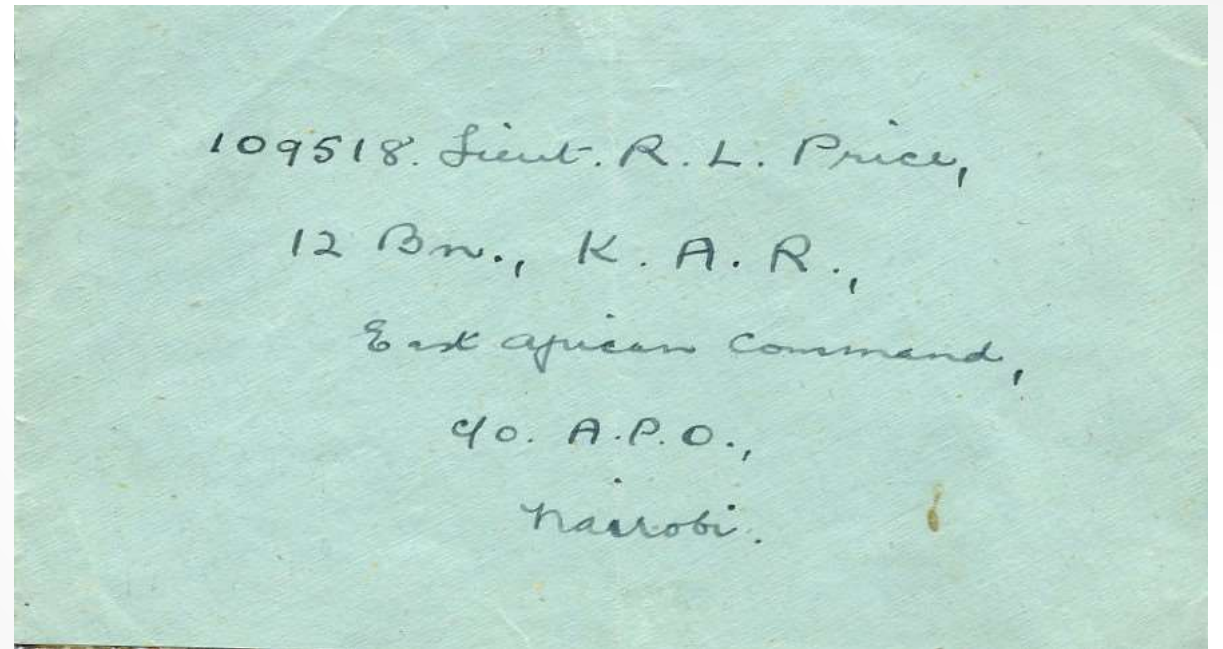 109518. Lieut. R. L. Price,
12 Bn., K. A. R.,
East African Command,
c/o. A.P.O.,
Nairobi.